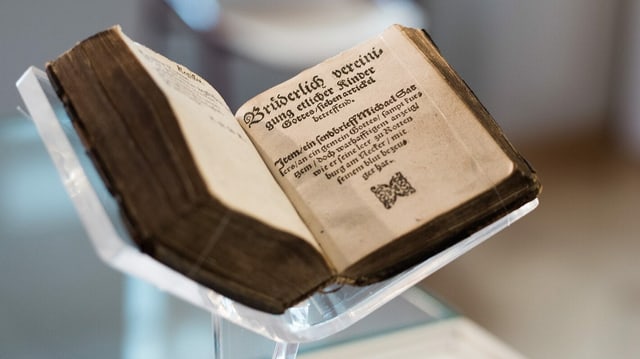 Brüderlich vereini-
gung etlicher Kinder
Gottes / siben artickel
betreffend.
Item / ein sendbrieff Michael Sat-
lers / an ein gemein Gottes / sampt kur-
tzem / doch warhafftigem anzeig /
wie er seine leer zů Rotten-
burg am Necker / mit
seinem blůt bezeu-
get hat.